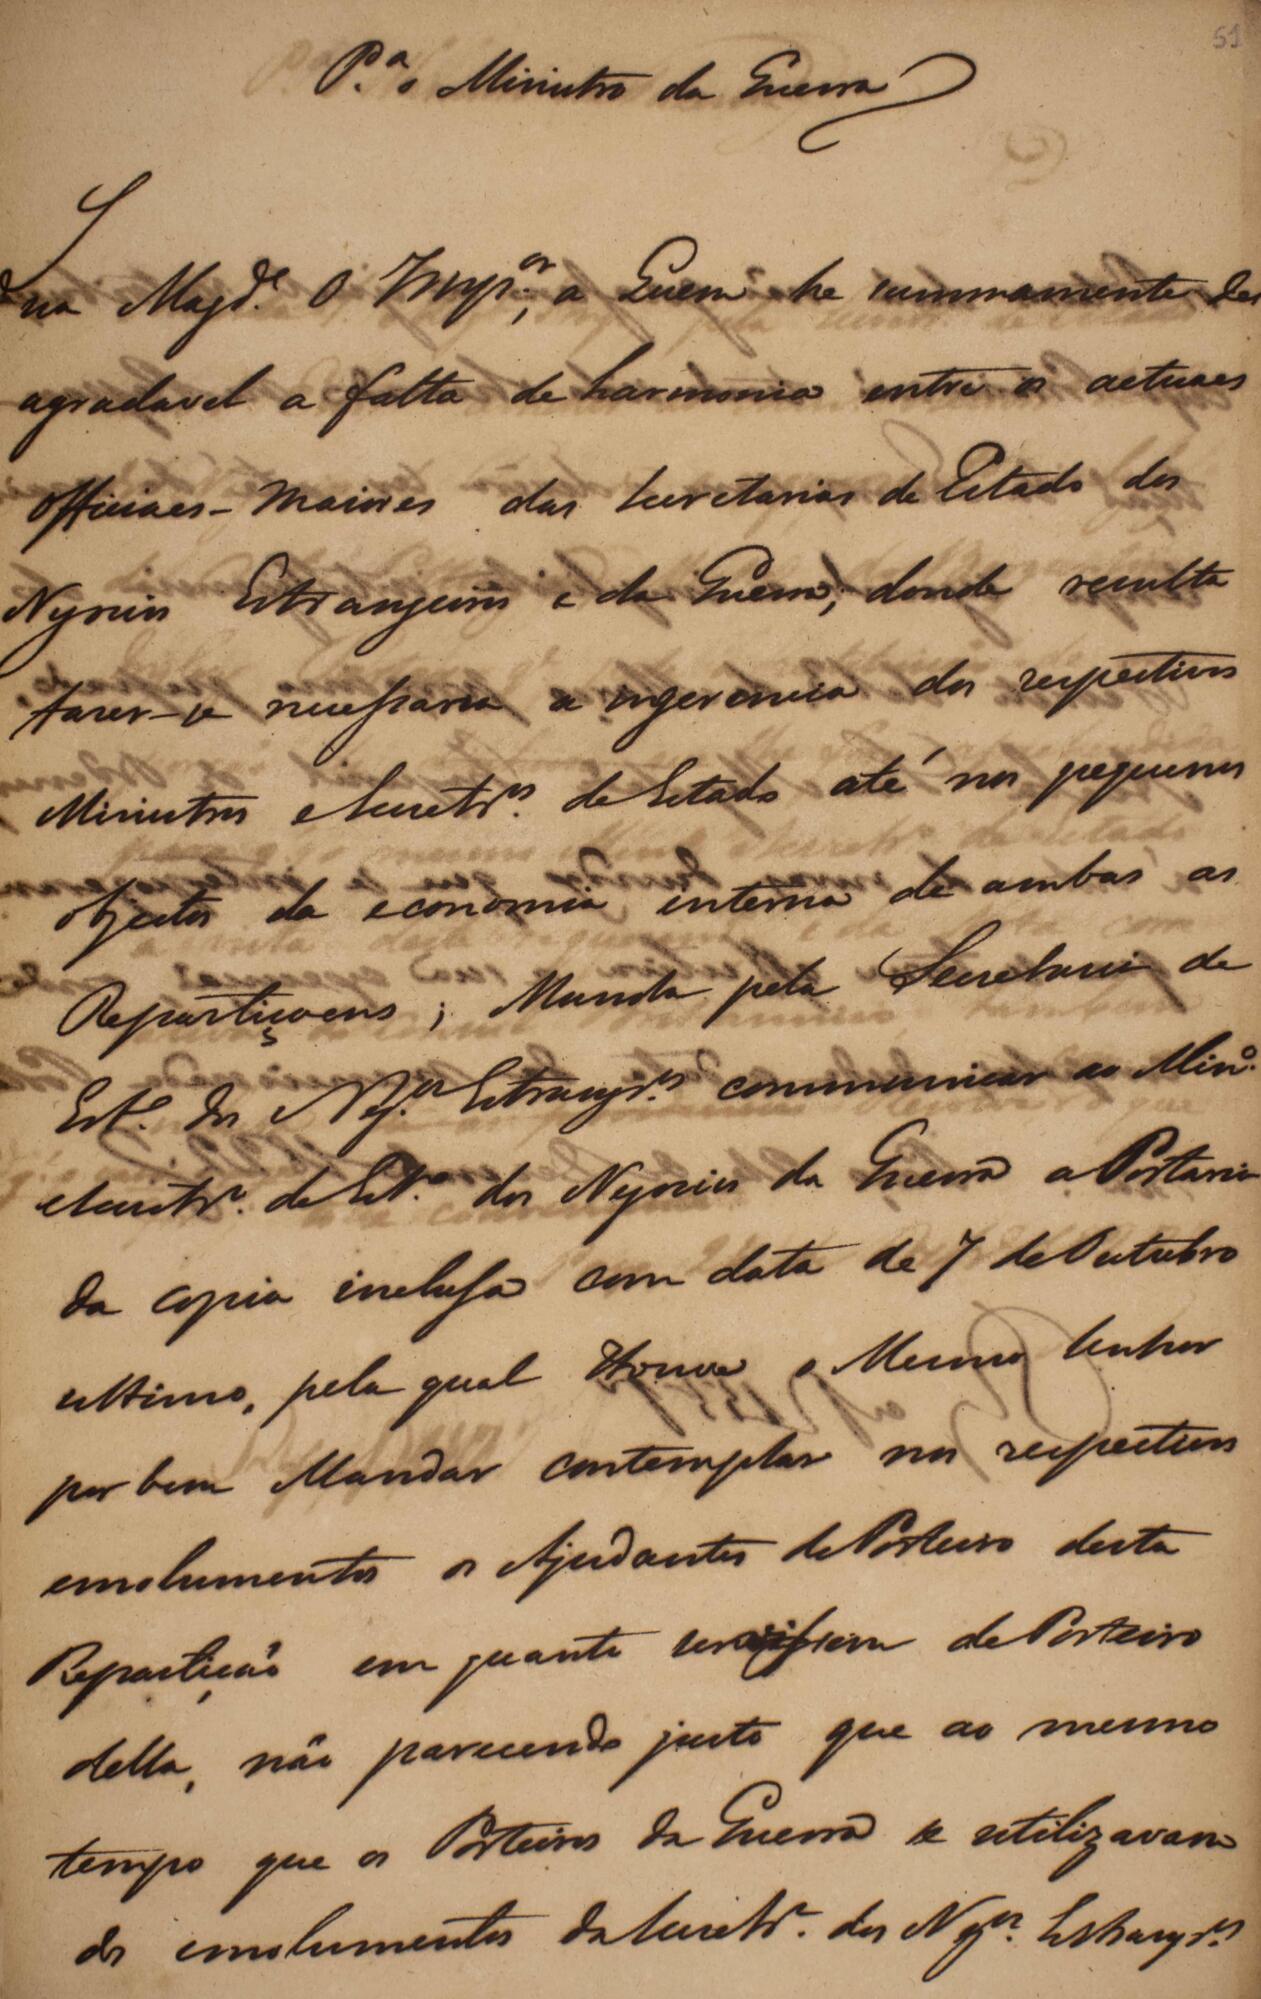 51
P.ª o Ministro da Guerra
Sua Magd.e O Imp.or, a Quem he summamente des
agradavel a falta de harmonia entre os actuaes
Officiaes-Maiores das Secretarias de Estado dos
Negocios Estrangeiros e da Guerra; donde resulta
fazer-se necessaria a ingerencia dos respectivos
Ministros e Secretr.os de Estado até nos pequenos
objectos da economia interna de ambas as
Repartiçoens; Manda pela Secretaria de
Est.o dos Neg.os Estrang.ros communicar ao Min.o
e Secretr.o de Est.o dos Negocios da Guerra a Portaria
da copia inclusa com data de 7 de Outubro
ultimo, pela qual Houve o Mesmo Senhor
por bem Mandar contemplar nos respectivos
emolumentos os Ajudantes do Porteiro desta
Repartição em quanto servissem de Porteiro
della, não parecendo justo que ao mesmo
tempo que os Porteiros da Guerra se utilizavam
dos emolumentos da Secretr.a dos Neg.os Estrang.ros